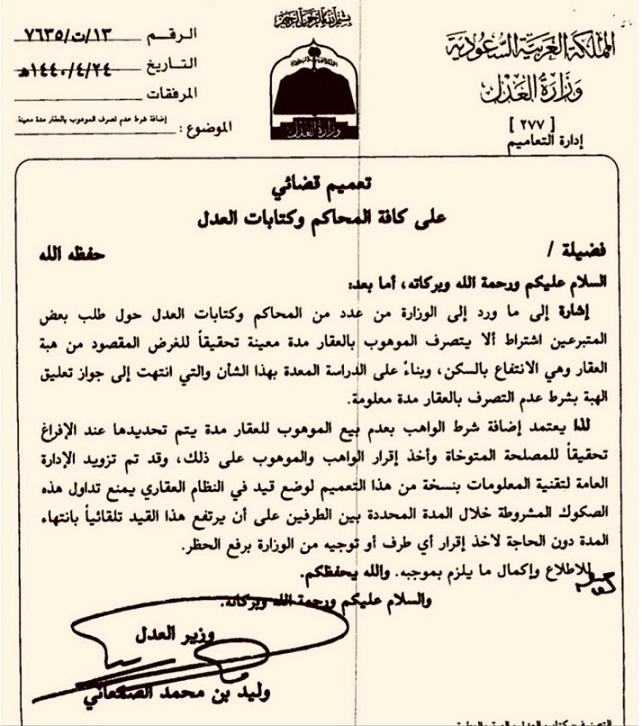 بسم الله الرحمن الرحيم
المملكة العربية السعودية
وزارة العدل
[ ٢٧٧ ]
إدارة التعاميم
وزارة العدل
الرقم ١٣/ت/٧٦٣٥
التاريخ ١٤٤٠/٤/٢٤هـ
المرفقات
الموضوع : إضافة شرط عدم تصرف الموهوب بالعقار مدة معينة.
تعميم قضائي
على كافة المحاكم وكتابات العدل
فضيلة / حفظه الله
السلام عليكم ورحمة الله وبركاته، أما بعد:
إشارة إلى ما ورد إلى الوزارة من عدد من المحاكم وكتابات العدل حول طلب بعض
المتبرعين اشتراط ألا يتصرف الموهوب بالعقار مدة معينة تحقيقاً للغرض المقصود من هبة
العقار وهي الانتفاع بالسكن، وبناءً على الدراسة المعدة بهذا الشأن والتي انتهت إلى جواز تعليق
الهبة بشرط عدم التصرف بالعقار مدة معلومة.
لذا يعتمد إضافة شرط الواهب بعدم بيع الموهوب للعقار مدة يتم تحديدها عند الإفراغ
تحقيقاً للمصلحة المتوخاة وأخذ إقرار الواهب والموهوب على ذلك، وقد تم تزويد الإدارة
العامة لتقنية المعلومات بنسخة من هذا التعميم لوضع قيد في النظام العقاري يمنع تداول هذه
الصكوك المشروطة خلال المدة المحددة بين الطرفين على أن يرتفع هذا القيد تلقائياً بانتهاء
المدة دون الحاجة لأخذ إقرار أي طرف أو توجيه من الوزارة برفع الحظر.
للاطلاع وإكمال ما يلزم بموجبه. والله يحفظكم.
والسلام عليكم ورحمة الله وبركاته.
وزير العدل
وليد بن محمد الصمعاني